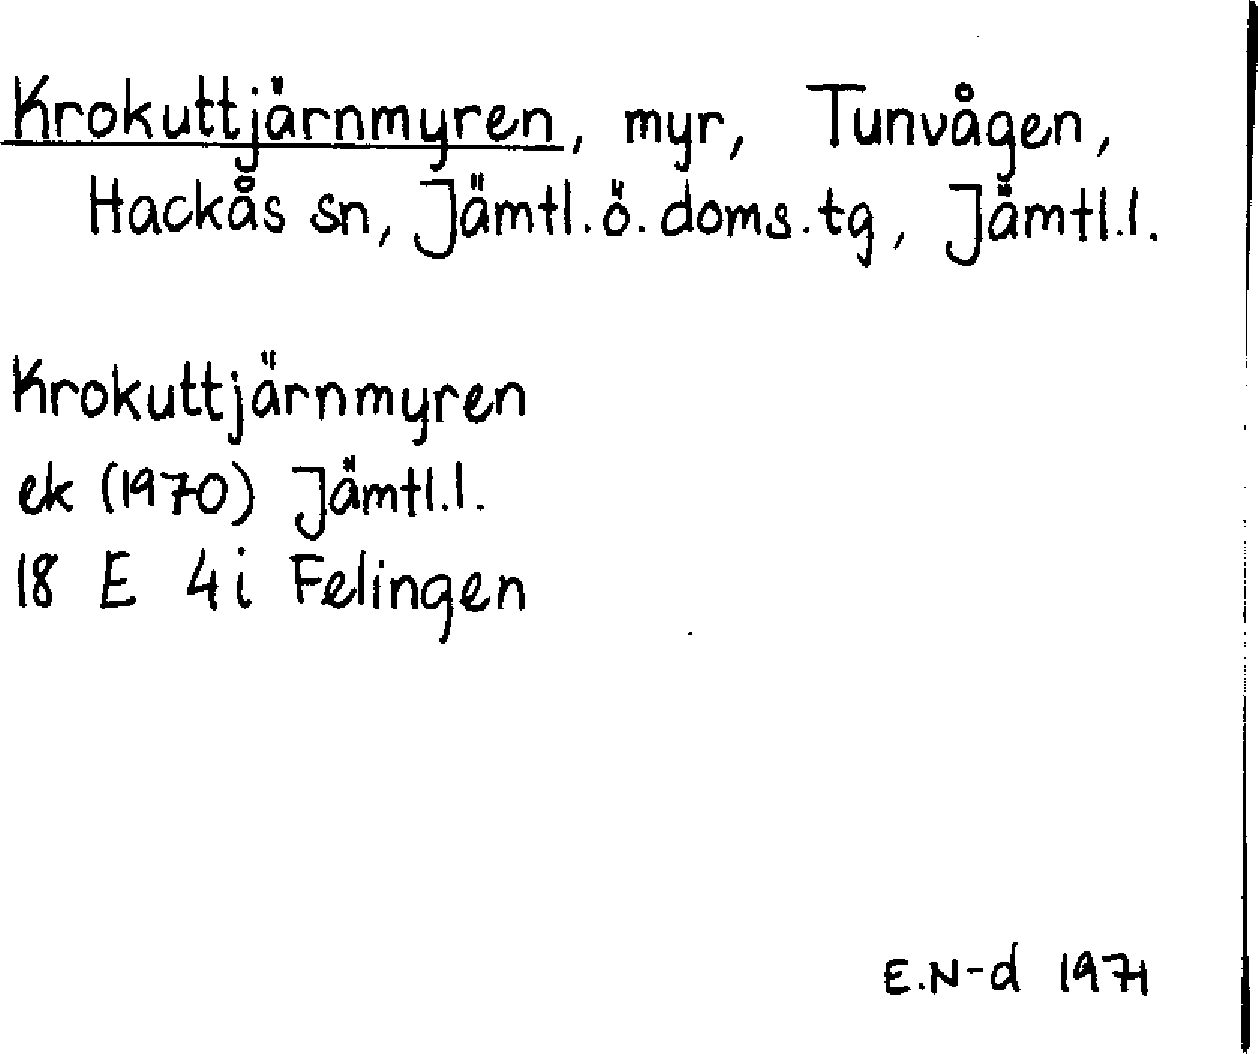 Krokuttjärnmyren, myr, Tunvågen,
Hackås sn, Jämtl.ö.doms.tg, Jämtl.l.
Krokuttjärnmyren
ek (1970) Jämtl.l.
18 E 4i Felingen
E.N-d 1971